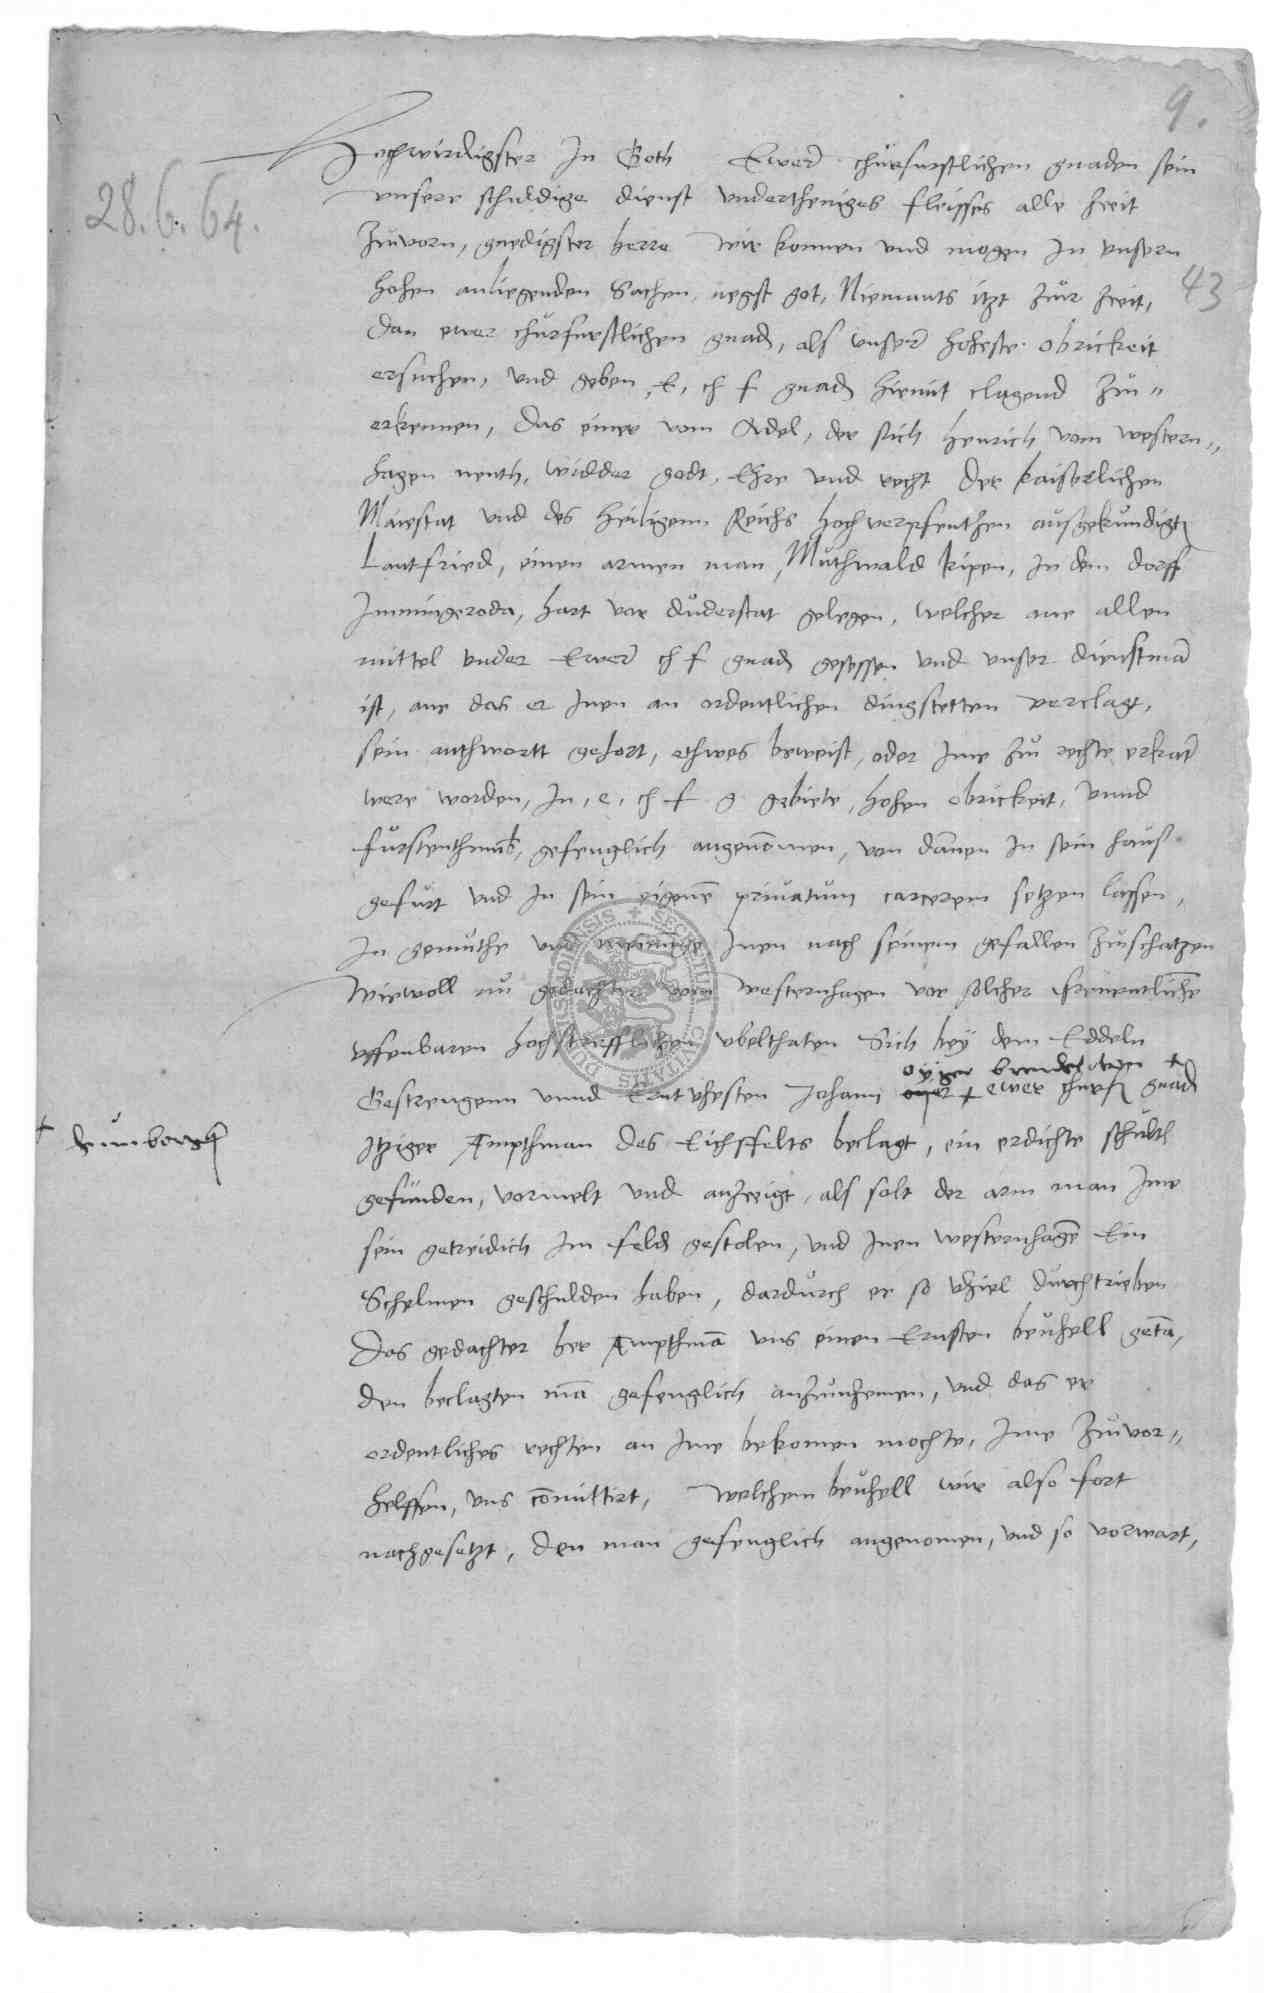 9.
28.6.64.
43
Hochwirdigster In Goth Ewer churfurstlichen gnaden sein
unsere schuldige dienst undertheniges fleisses alle Zeit
Zuvorn, gnedigster herre wir konnen und mogen In unsern
hohen anliegenden Sachen, negst got, Niemants itzt Zur Zeit,
dan ewer churfurstlichen gnad, als unser hoheste obrickeit
ersuchen, und geben, E, ch f gnad hiemit clagend Zu"
erkennen, das einer vom Adel, der sich Henrich vom Western"
hagen nenth, widder godt, Ehre und recht der kaiserlichen
Maiestat und des heiligenn Reichs hochverpfenthen ausgekundigt
Lantfried, einen armen man, Muthwald kipen, In dem dorff
Immingeroda, hart vor duderstat gelegen, welcher ane allen
mittel under Ewer ch f gnad gesessen und unser dienstma
ist, ane das er Inen an ordentlichen dingstetten verclagt,
sein anthwortt gehort, ethwes beweist, oder Ime Zu rechte erkat
were worden, In, e, ch f g gebiete, hohen obrickeit, unnd
furstenthumb, gefenglich angenomen, von dannen In sein haus
gefurt und In sein eigene privatum carcerem setzen lassen,
In gemuthe und meinunge Inen nach seinem gefallen Zuschatzen
Wiewoll nu gedachter vom Westernhagen vor solcher freventliche
offenbaren hochstrefflichen ubelthaten Sich bey dem Eddeln
oyger brendel +
Gestrengenn unnd Erntvhesten Johann oyer + ewer churf gnad
+ humborgh
Itziger Ampthman des Eichsffelts beclagt, ein erdichte schulth
gefunden, vormelt und anzeigt, als solt der arm man Ime
sein getreidich Im feld gestolen, und Inen westernhage Ein
Schelmen geschulden haben, dardurch er so vhiel durchtrieben
Das gedachter her Ampthma uns einen Ernsten bevhell geta,
den beclagten ma gefenglich anzunhemen, und das er
ordentliches rechten an Ime bekomen mochte, Ime Zuvor"
helffen, uns comittirt, welchem bevhell wir also fort
nachgesetzt, den man gefenglich angenomen, und so vorwart,
SECRETUM CIVITATIS